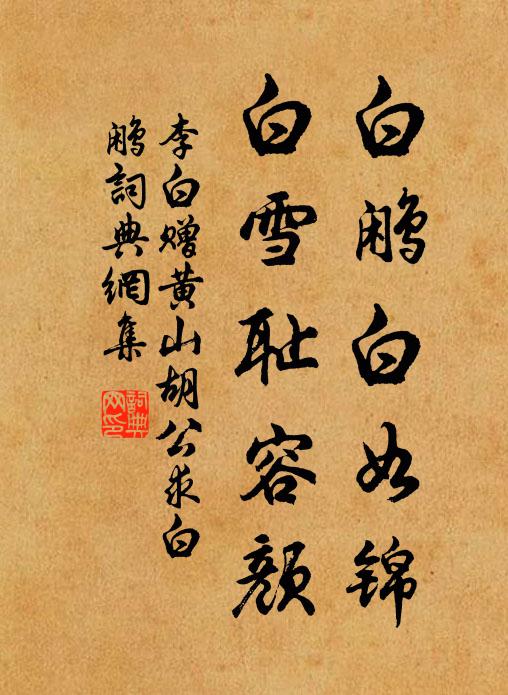 白鹇白如锦
白雪耻容颜
李白赠黄山胡公求白
鹇词典網集
詞典
网印